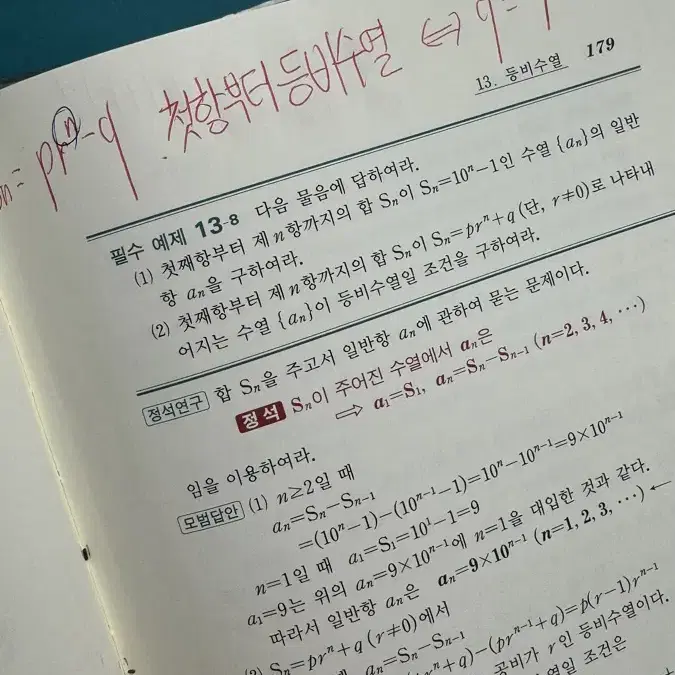 첫항부터 등비수열 ⇔
pr^n-q
13. 등비수열 179
필수 예제 13-8 다음 물음에 답하여라.
(1) 첫째항부터 제 n항까지의 합 Sₙ이 Sₙ=10ⁿ-1인 수열 {aₙ}의 일반
항 aₙ을 구하여라.
(2) 첫째항부터 제 n항까지의 합 Sₙ이 Sₙ=prⁿ+q (단, r≠0)로 나타내
어지는 수열 {aₙ}이 등비수열일 조건을 구하여라.
정석연구 합 Sₙ을 주고서 일반항 aₙ에 관하여 묻는 문제이다.
정석 Sₙ이 주어진 수열에서 aₙ은
⇒ a₁=S₁, aₙ=Sₙ-Sₙ₋₁ (n=2, 3, 4, ⋯)
임을 이용하여라.
모범답안 (1) n≥2일 때
aₙ=Sₙ-Sₙ₋₁
=(10ⁿ-1)-(10ⁿ⁻¹-1)=10ⁿ-10ⁿ⁻¹=9×10ⁿ⁻¹
n=1일 때 a₁=S₁=10¹-1=9
a₁=9는 위의 aₙ=9×10ⁿ⁻¹에 n=1을 대입한 것과 같다.
따라서 일반항 aₙ은 aₙ=9×10ⁿ⁻¹ (n=1, 2, 3, ⋯) ←
(2) Sₙ=prⁿ+q (r≠0)에서
aₙ=Sₙ-Sₙ₋₁
+q)-(prⁿ⁻¹+q)=p(r-1)rⁿ⁻¹
공비가 r인 등비수열이다.
열일 조건은